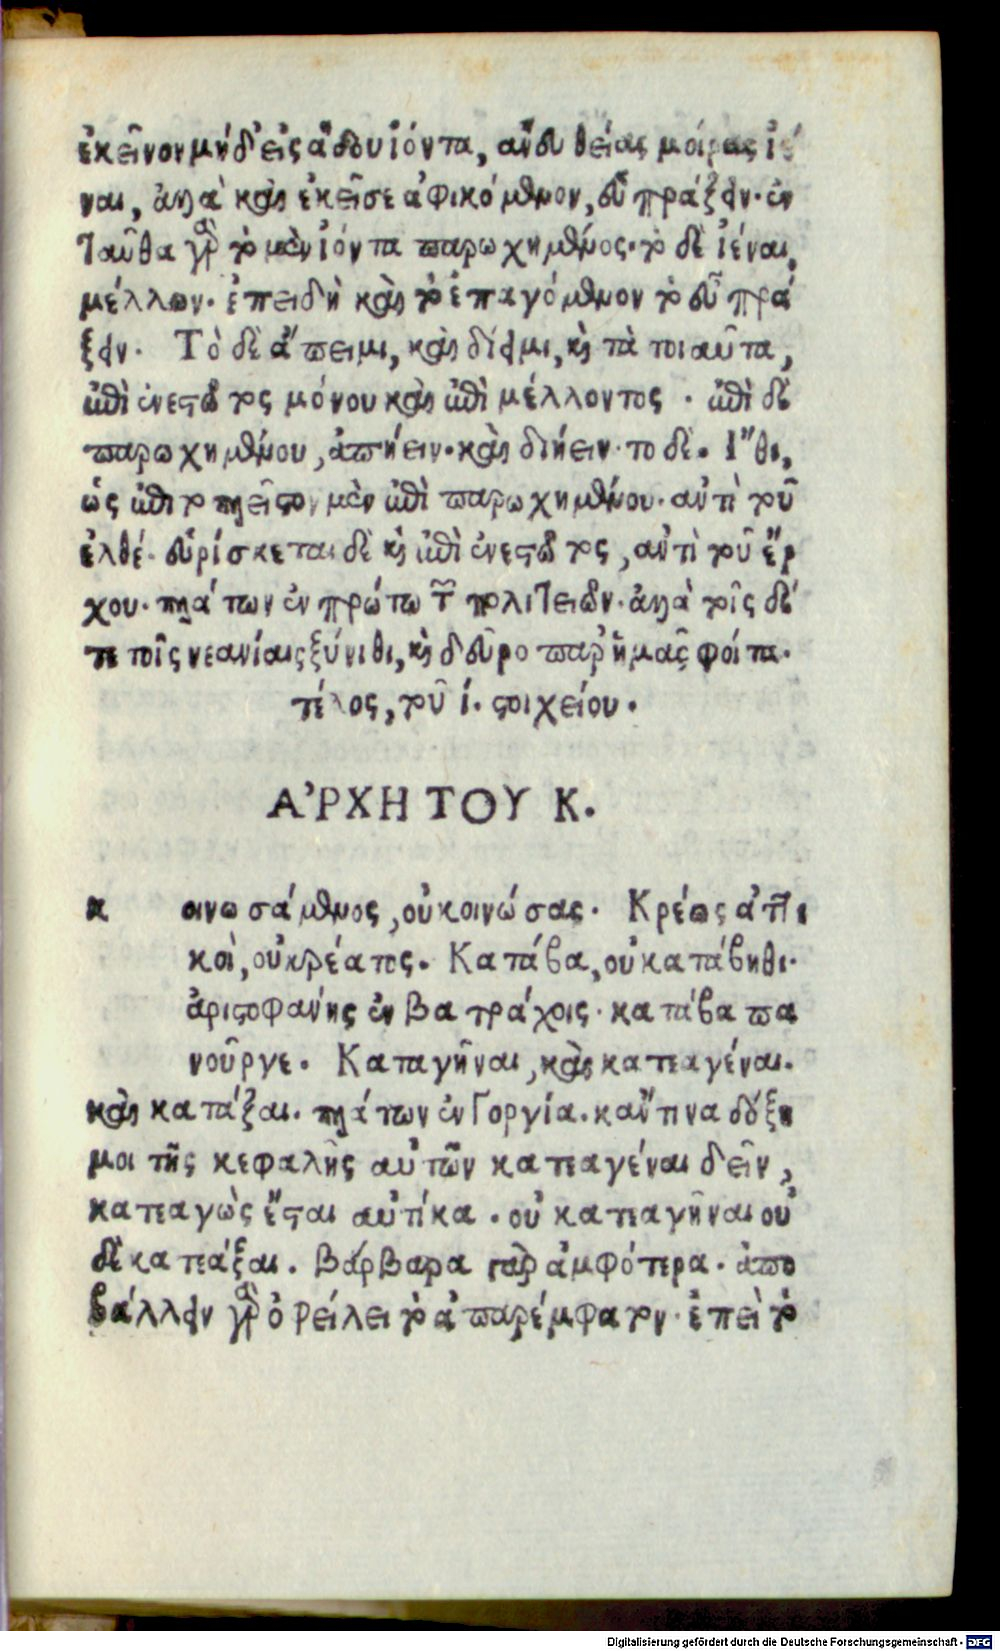 ἐκεῖνον μήδ' εἰς ἅδου ἰόντα, ἄνευ θείας μοίρας ἰέ
ναι, ἀλλὰ καὶ ἐκεῖσε ἀφικόμενον, εὖ πράξειν. ἐν
ταῦθα γὰρ τὸ μὲν ἰόντα παρωχημένος. τὸ δὲ ἰέναι,
μέλλων. ἐπειδὴ καὶ τὸ ἐπαγόμενον τὸ εὖ πρά
ξειν. Τὸ δὲ ἄπειμι, καὶ δίειμι, καὶ τὰ τοιαῦτα,
ἐπὶ ἐνεστῶτος μόνου καὶ ἐπὶ μέλλοντος. ἐπὶ δὲ
παρωχημένου, ἀπήειν. καὶ διήειν. το δὲ. Ἴθι,
ὡς ἐπι το πλεῖστον μὲν ἐπὶ παρωχημένου. αὐτὶ τοῦ
ἐλθέ. εὑρίσκεται δὲ καὶ ἐπὶ ἐνεστῶτος, αὐτὶ τοῦ ἔρ
χου. πλάτων ἐν πρώτω τῶν πολιτειῶν. ἀλλὰ τοῖς δέ
τε τοῖς νεανίαις ξύνιθι, καὶ δεῦρο παρ' ἡμᾶς φοίτα.
τέλος, τοῦ ί. στοιχείου.
ΑʼΡΧΗ ΤΟΥ Κ.
κ οινωσάμενος, οὐ κοινώσας. Κρέως ἀττι
κοὶ, οὐ κρέατος. Κατάβα, οὐ κατάβηθι.
ἀριστοφάνης ἐν βατράχοις. κατάβα πα
νοῦργε. Καταγῆναι, καὶ κατεαγέναι.
καὶ κατάξαι. πλάτων ἐν Γοργία. κἄν τινα δόξη
μοι τῆς κεφαλῆς αὐτῶν κατεαγέναι δεῖν,
κατεαγὼς ἔσται αὐτίκα. οὐ κατεαγῆναι οὐ
δὲ κατεάξαι. βάρβαρα γὰρ ἀμφότερα. ἀπο
βάλλειν γὰρ ὀφείλει τὸ ἀπαρέμφατον. ἐπεὶ τὸ
Digitalisierung gefördert durch die Deutsche Forschungsgemeinschaft - DFG